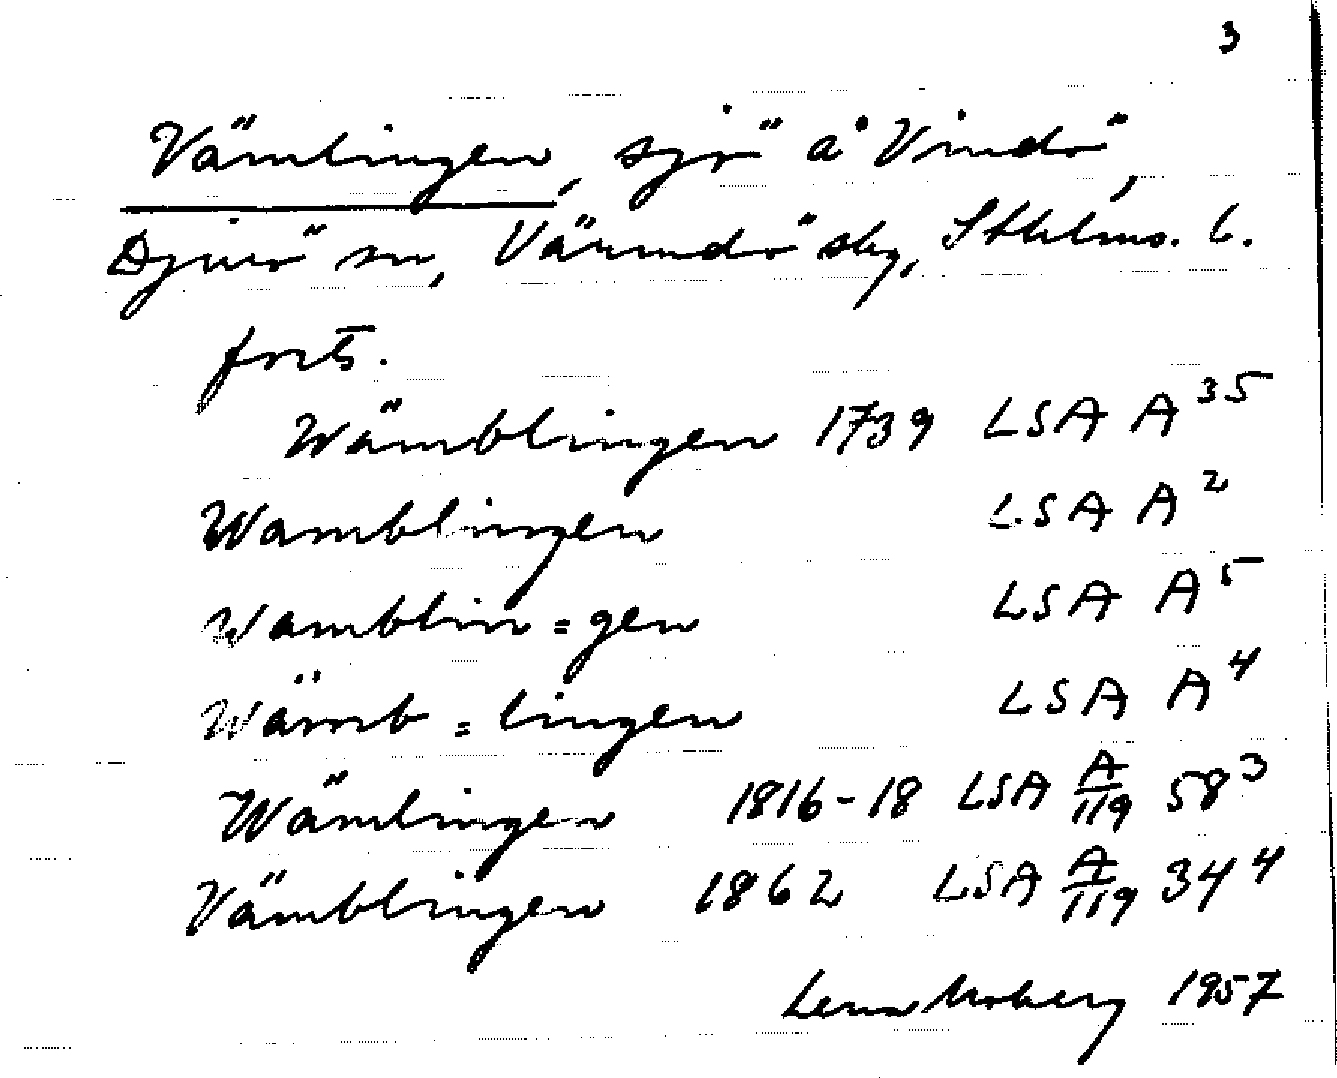 3
Vämlingen, sjö å Vindö,
Djurö sn, Värmdö skg, Sthlms. l.
forts.
Wämblingen 1739 LSA A 35
Wamblingen LSA A 2
Wamblin = gen LSA A 5
Wämb = lingen LSA A 4
Wämlingen 1816-18 LSA A/119 58 3
Vämblingen 1862 LSA A/119 34 4
Lena Moberg 1957